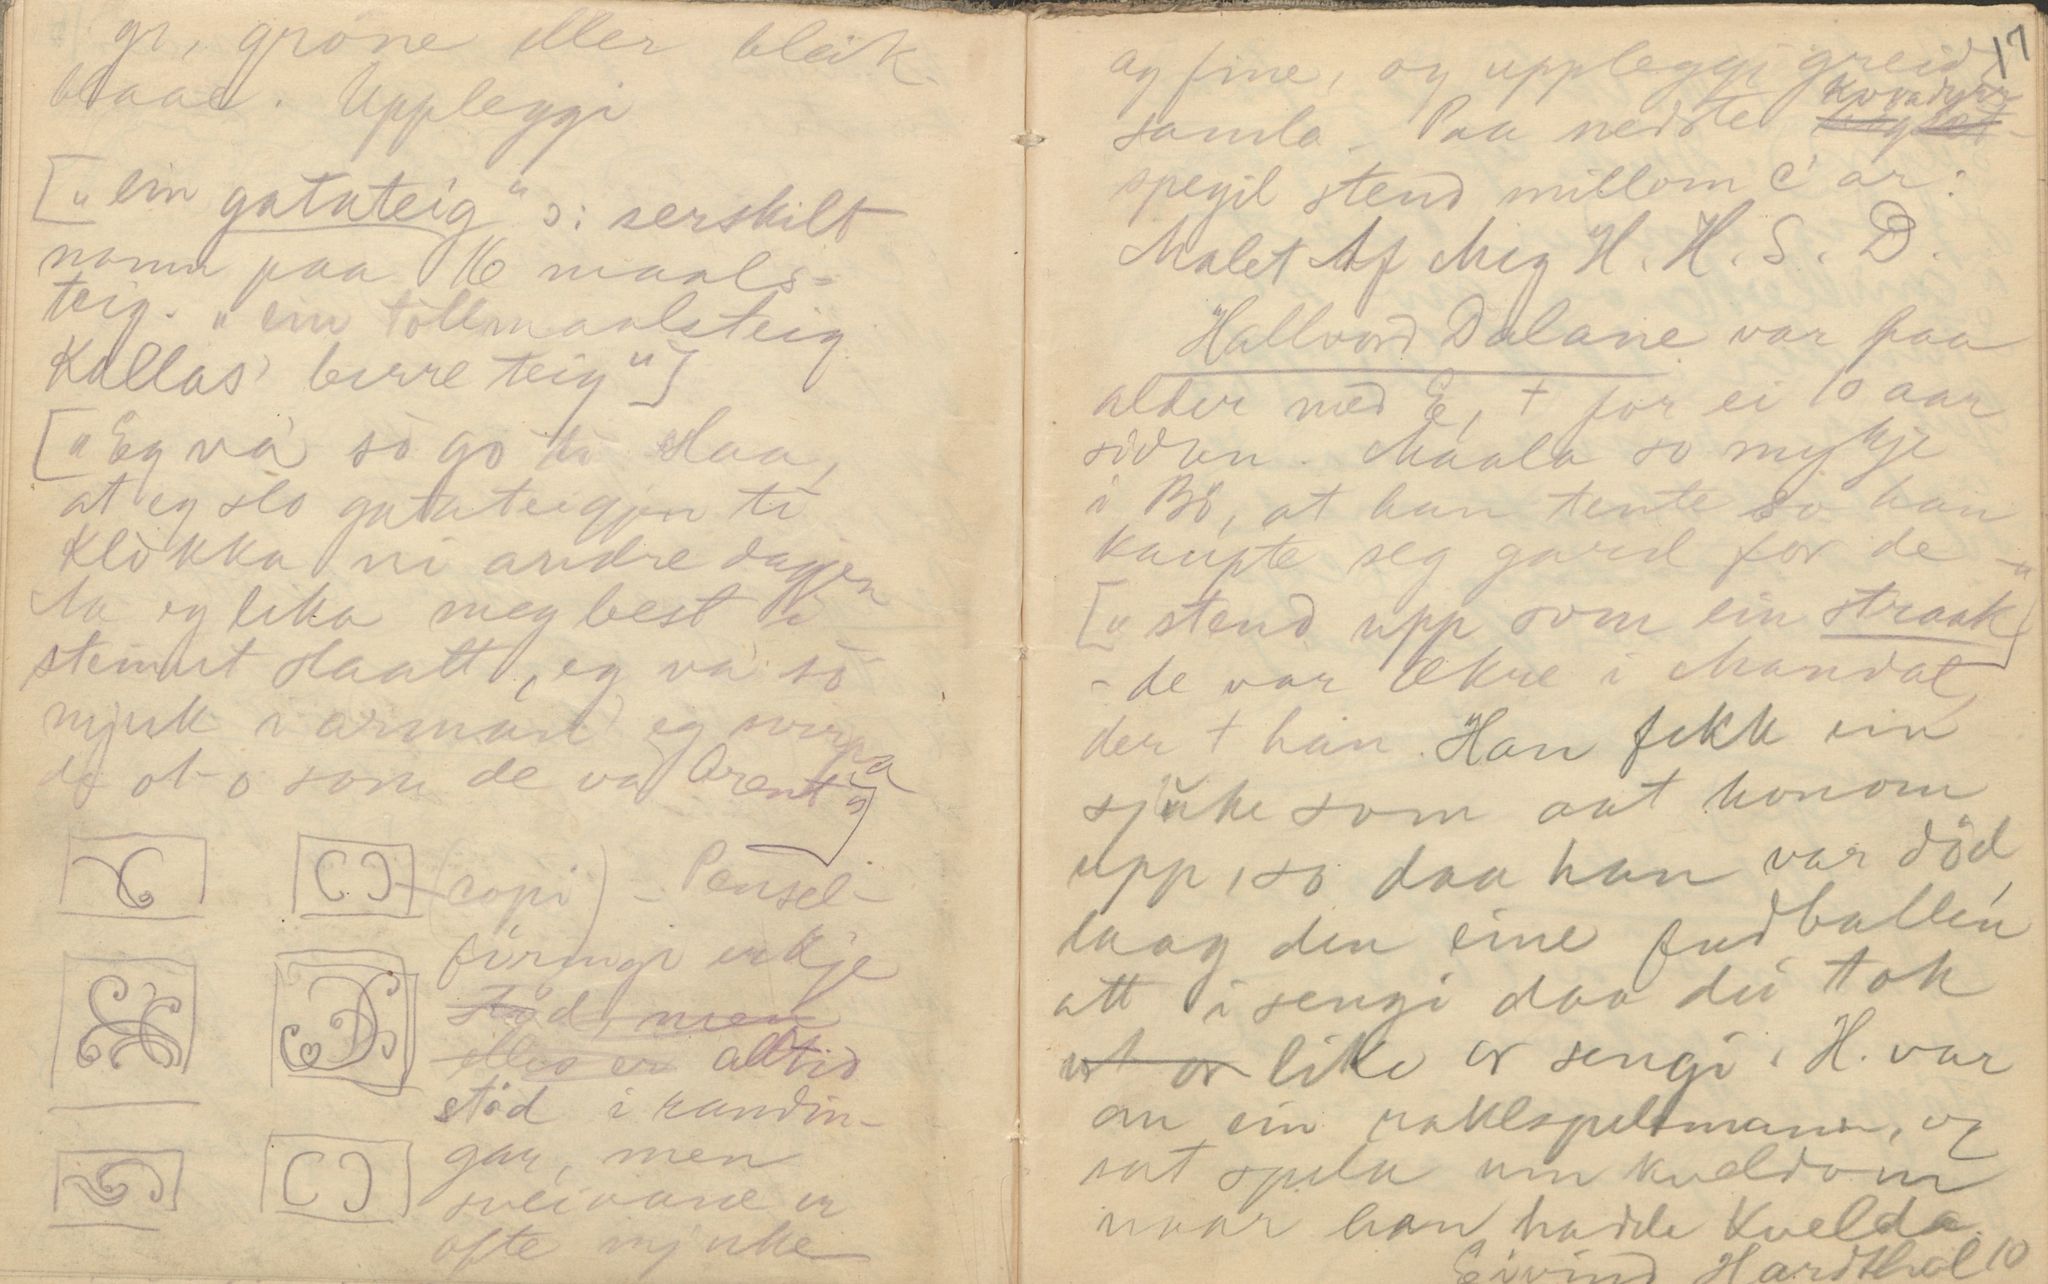 gr, gröne eller bleik-
blaae. Uppleggi
["ein gatuteig" ɔ: serskilt
namn paa 16 maals-
teig. "ein tollmaalsteig
Kallas' berre teig"]
["Eg va' so go te slaa,
at eg slo gatuteigjen ti
Klokka ni andre dagjen
Ma eg lika meg best i
stemut slaatt, eg va' so
mjuk i arman eg
de ot o som de va' Orent"]
(copi) - Pensel-
föringi er kje
stöd, men
elles er alltid
stöd i randin-
gar, men
sveivane er
ofte mjuke
17
og fine, og uppleggji greid
samla. Paa nedste Kvradyrs
spegil stend millom C' ar:
Malet Af Mig H. H. S. D.
Hallvord Dalane var paa
alder med E, † for ei 10 aar
sidan. Maala so mykje
i Bö, at han tente so han
kaupte seg gard for de -
["stend upp som ein straak"]
- de var Ækre i Mandal,
der † han. Han fekk ein
sjuke som aat honom
upp, so daa han var död,
laag den eine fudballen
att i sengi daa dei tok
ut or liket or sengi. H. var
au ein spelemann, og
sat spela um kveldom
naar han hadde Kvelda.
Eivind Hardthol 10